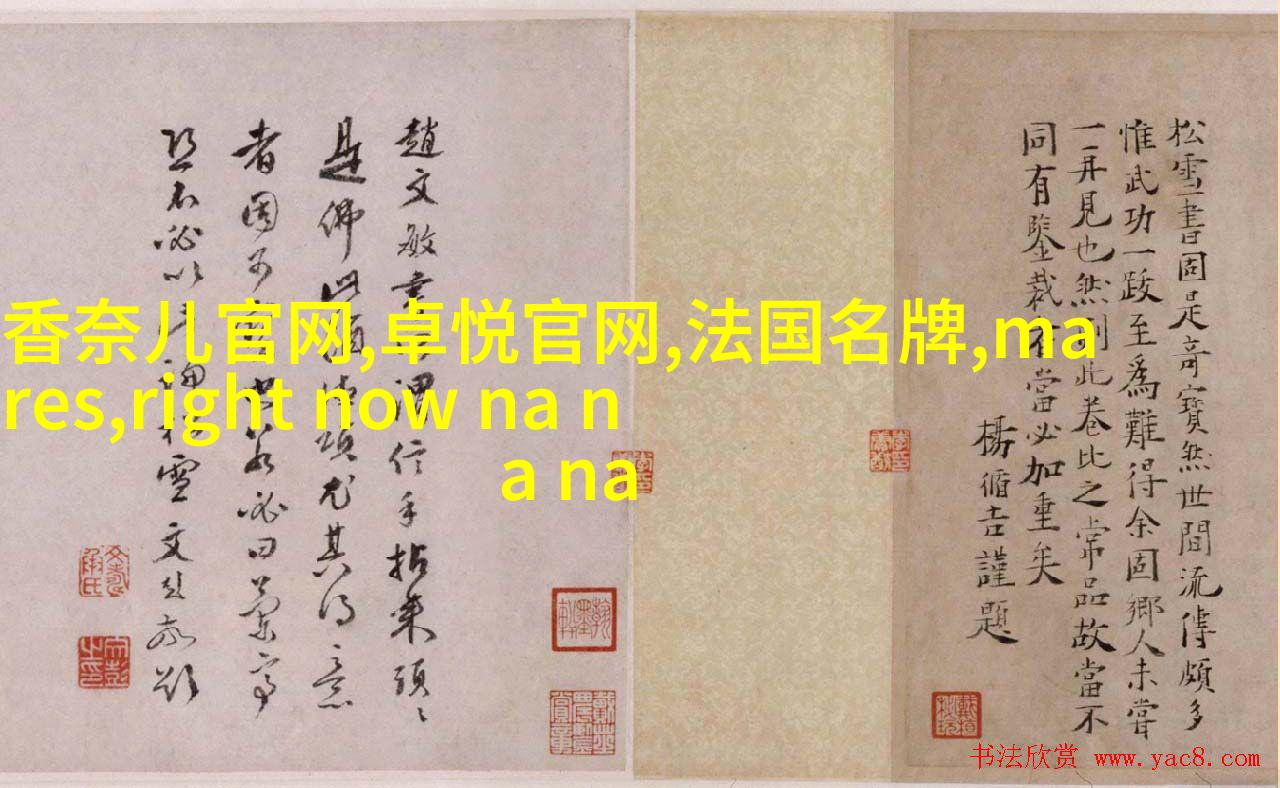 香奈儿官网,卓悦官网,法国名牌,ma
res,right now na n
a na
松雪書固是奇寶然世間流傳頗多
惟武功一跋至爲難得余固鄉人未嘗
一再見也然則此卷比之常品故當不
同有鑒裁者當必加重矣
楊循吉謹題
趙文敏書謂信手拈來頭〻
是佛尤其得意
者固可世若必曰蘭亭
雪文
书法欣赏 www.yac8.com